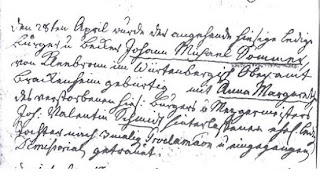 den 28ten April wurde der angehende hiesige ledige
Bürger u Becker Johann Michael Sommer
von Kleebronn im Würtenbergis. Oberamt
Brackenheim gebürtig mit Anna Margaretha
des verstorbenen hies. Burgers u Mezgermeisters
Joh. Valentin Schmidt hinterlassenen ehel. led.
Tochter nach 3 malig Proclamation u eingegangenen
Dimissorial getrauet.